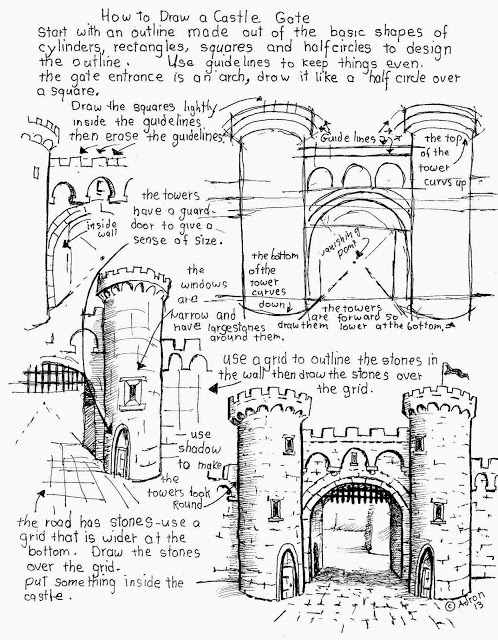 How to Draw a Castle Gate
Start with an outline made out of the basic shapes of
cylinders, rectangles, squares and halfcircles to design
the outline. Use guidelines to keep things even.
the gate entrance is an arch, draw it like a half circle over
a square.
Draw the squares lightly
inside the guidelines
then erase the guidelines
Guide lines
the top
of the
tower
curvs up
the towers
have a guard
door to give a
sense of size.
inside
wall
vanishing
point
the bottom
of the
tower
curves
down
the
windows
are
narrow and
have large stones
around them.
the towers
are forward so
draw them lower at the bottom.
use a grid to outline the stones in
the wall then draw the stones over
the grid.
use
shadow
to make
the
towers took
Round
the road has stones-use a
grid that is wider at the
bottom. Draw the stones
over the grid.
put something inside the
castle.
© Adron
13